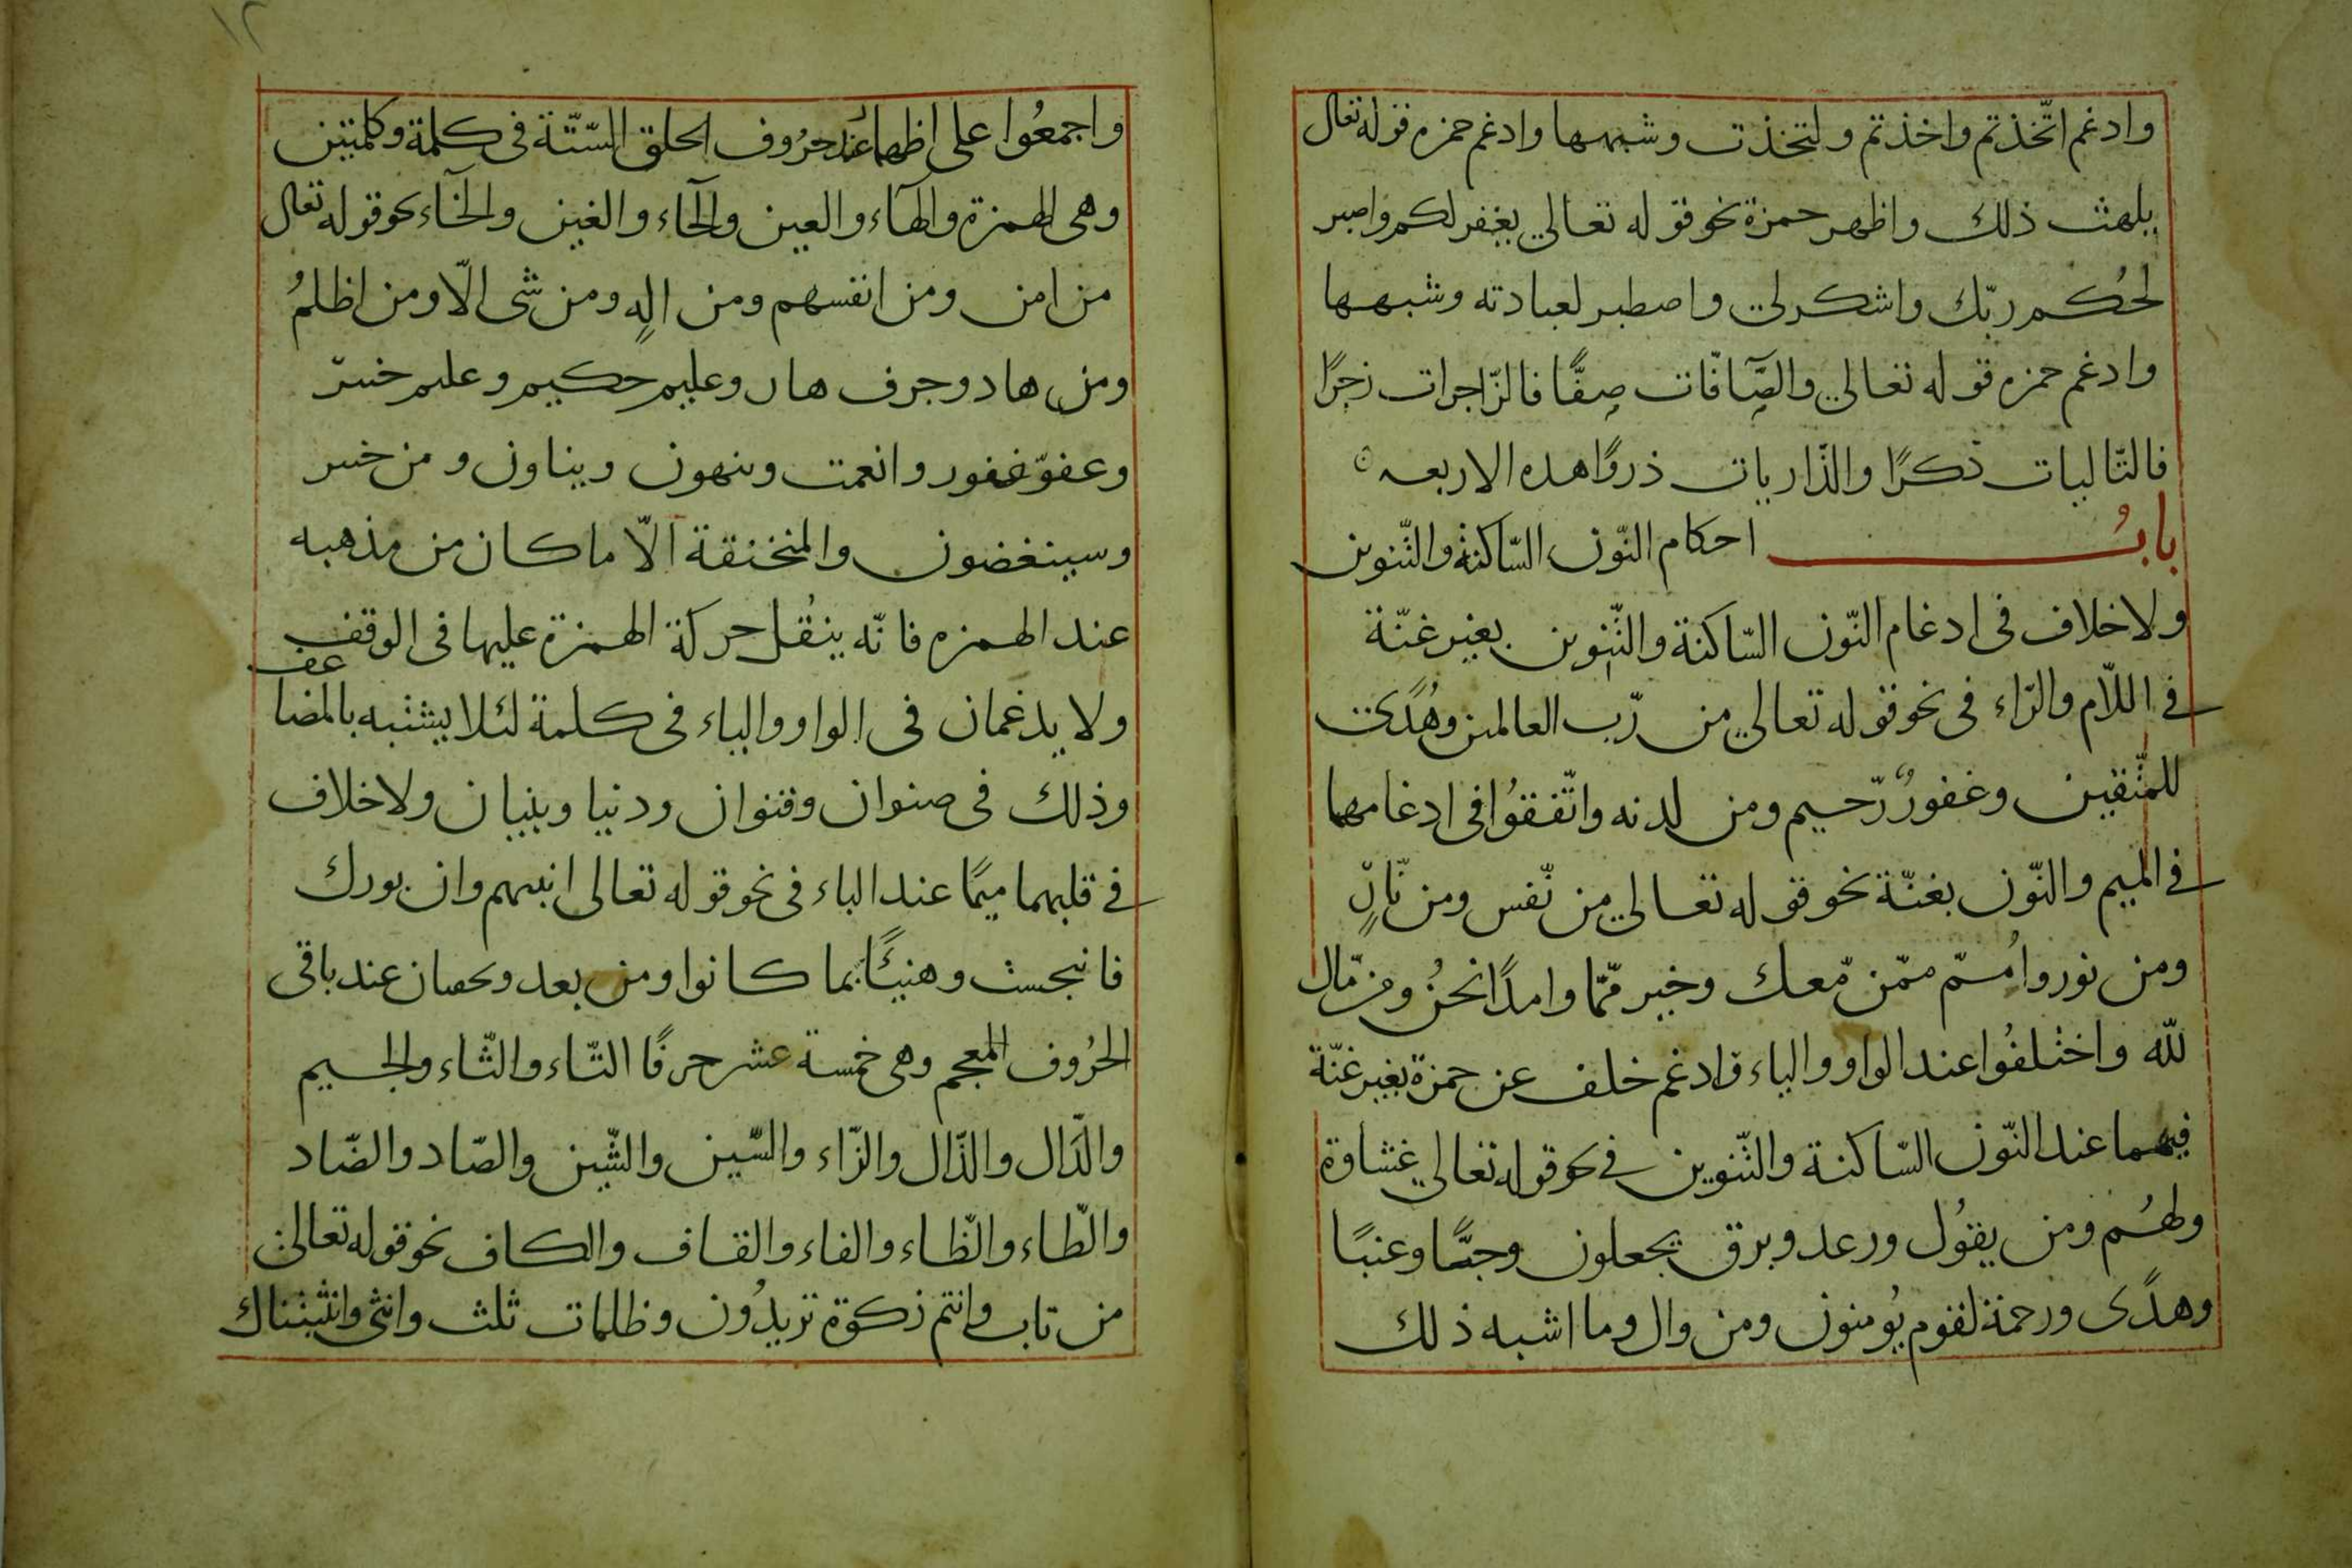 وادغم اتّخذتم واخذتم ولتخذت وشبهها وادغم حمزه قوله تعالى
يلهث ذلك واظهر حمزة نحو قوله تعالي يغفر لكم واصبر
لحُكم ربّك واشكر لي واصطبر لعبادته وشبهها
وادغم حمزه قوله تعالي والصّآفّات صفًّا فالزّاجرات زجرًا
فالتّاليات ذكرًا والذّاريات ذروًا هذه الاربعه
بابُ احكام النّون السّاكنة والتّنوين
ولا خلاف فى ادغام النّون السّاكنة والتّنوين بغير غنّة
في اللّام والرّاء فى نحو قوله تعالي من رّب العالمين وهُدًى
للمتّقين وغفورٌ رّحيم ومن لدنه واتّفقُوا فى ادغامهما
في الميم والنّون بغنّة نحو قوله تعالي من نّفس ومن نّارٍ
ومن نور واُمم ممّن مّعك وخير ممّا وامدًا نحنُ ومن مّال
للّه واختلفُوا عند الواو والياء فادغم خلف عن حمزة بغير غنّة
فيهما عند النّون السّاكنة والتّنوين في نحو قوله تعالي غشاوة
ولهُم ومن يقوُل ورعد وبرق يجعلون وحبًّا وعنبًا
وهدًى ورحمة لقوم يُومنون ومن وال وما اشبه ذلك
١٢
واجمعُوا على اظهارهما عند حرُوف الحلق السّتّة فى كلمة وكلمتين
وهى الهمزة والهآء والعين والحآء والغين والخآء نحو قوله تعالى
من امن ومن انفسهم ومن الهٍ ومن شى الّا ومن اظلمُ
ومن هاد وجرف هار وعليم حكيم وعليم خبير
وعفوّ غفور وانعمت وينهون ويناون ومن خير
وسينغضون والمنخنقة الّا ما كان من مذهبه
عند الهمزه فانّه ينقُل حركة الهمزة عليها فى الوقف
ولا يدغمان فى الواو والياء فى كلمة لئلا يشتبه بالمضاعف
وذلك فى صنوان وقنوان ودنيا وبنيان ولا خلاف
في قلبهما ميمًا عند الباء فى نحو قوله تعالى انبيهم وان بورك
فانبجست وهنيئًا بما كانوا ومن بعد ويخفيان عند باقى
الحرُوف المعجم وهى خمسة عشر حرفًا التّاء والثّاء والجيم
والدّال والذّال والزّاء والسّين والشّين والصّاد والضّاد
والطّاء والظّاء والفاء والقاف والكاف نحو قوله تعالى
من تاب وانتم زكوة تريدُون وظلمات ثلث وانثى